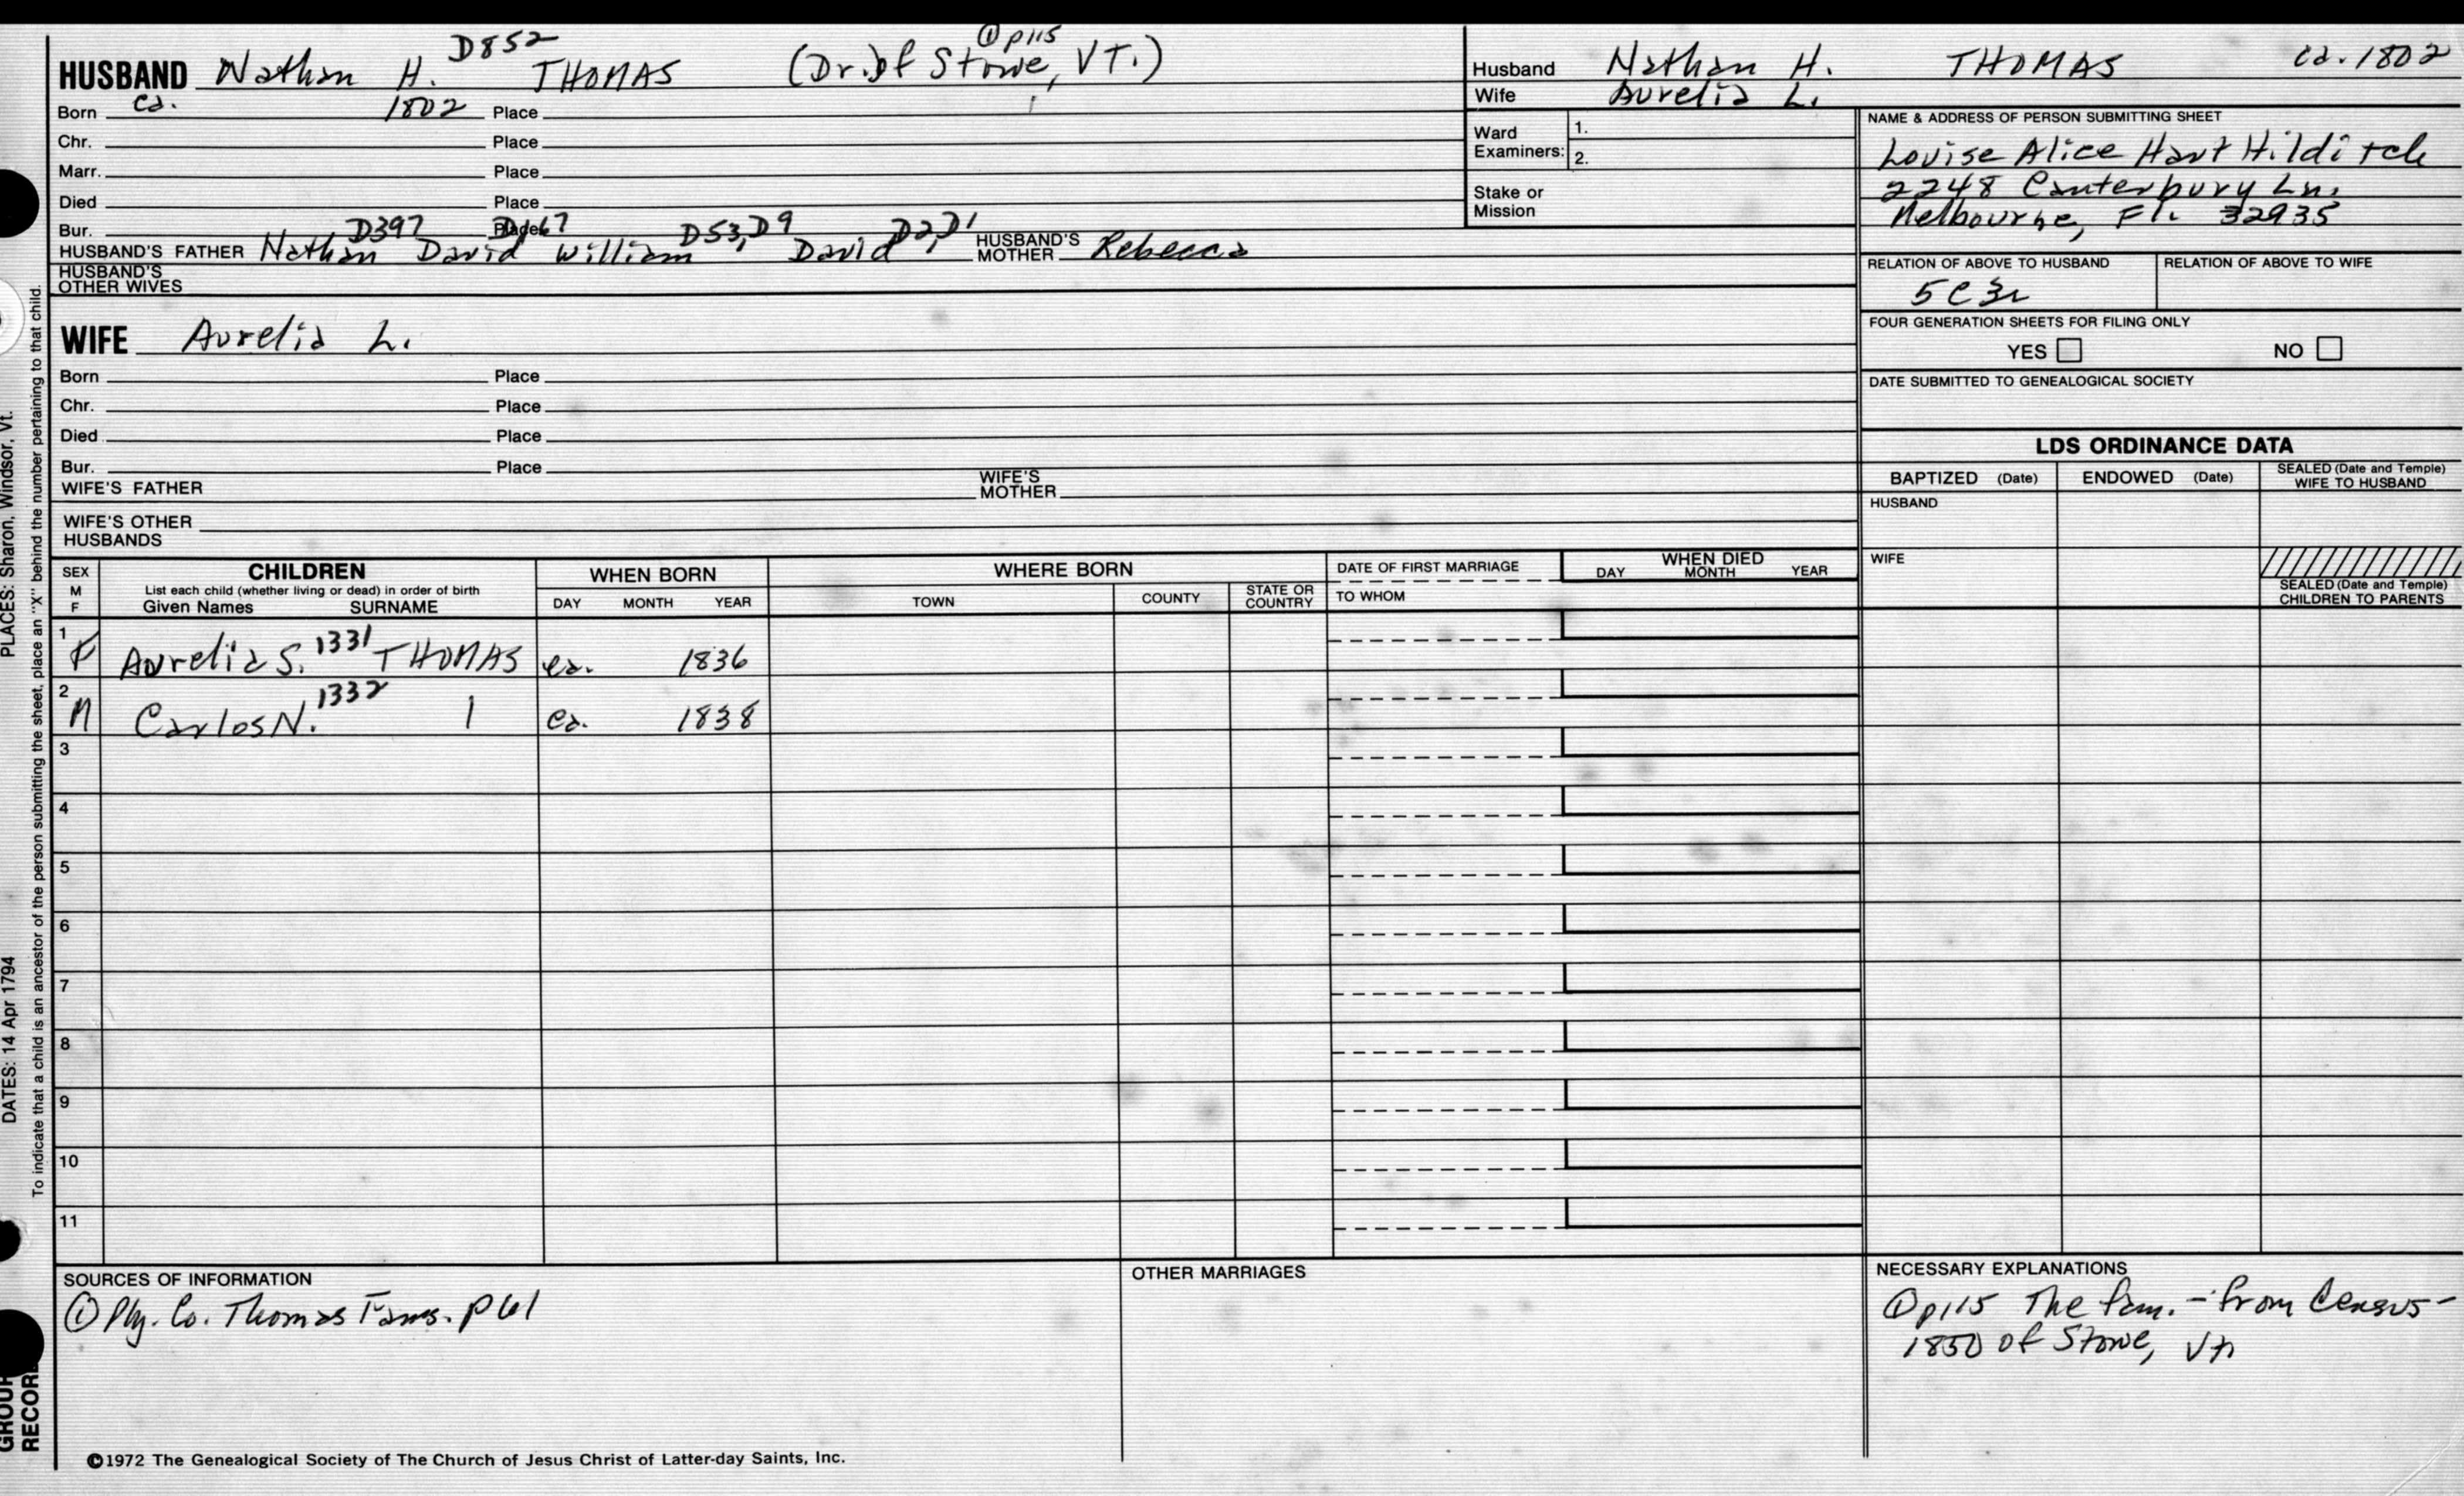 HUSBAND Nathan H. D852 THOMAS (Dr. of Stowe, VT.) ① p115
Born ca. 1802 Place
Chr. Place
Marr. Place
Died Place
Bur. Place
HUSBAND'S FATHER Nathan D397 David D167 William D53, D9 David D2, D1 HUSBAND'S MOTHER Rebecca
HUSBAND'S OTHER WIVES
Husband Nathan H. THOMAS ca. 1802
Wife Aurelia L.
Ward Examiners: 1.
2.
Stake or Mission
NAME & ADDRESS OF PERSON SUBMITTING SHEET
Louise Alice Hart Hilditch
2248 Canterbury Ln.
Melbourne, Fl. 32935
RELATION OF ABOVE TO HUSBAND RELATION OF ABOVE TO WIFE
5C3r
FOUR GENERATION SHEETS FOR FILING ONLY
YES NO
DATE SUBMITTED TO GENEALOGICAL SOCIETY
WIFE Aurelia L.
Born Place
Chr. Place
Died Place
Bur. Place
WIFE'S FATHER WIFE'S MOTHER
WIFE'S OTHER HUSBANDS
LDS ORDINANCE DATA
BAPTIZED (Date) ENDOWED (Date) SEALED (Date and Temple) WIFE TO HUSBAND
HUSBAND
WIFE
SEALED (Date and Temple) CHILDREN TO PARENTS
SEX M F
CHILDREN
List each child (whether living or dead) in order of birth
Given Names SURNAME
WHEN BORN
DAY MONTH YEAR
WHERE BORN
TOWN COUNTY STATE OR COUNTRY
DATE OF FIRST MARRIAGE
TO WHOM
WHEN DIED
DAY MONTH YEAR
1 F Aurelia S. 1331 THOMAS ca. 1836
2 M Carlos N. 1332 | ca. 1838
3
4
5
6
7
8
9
10
11
SOURCES OF INFORMATION
① Ply. Co. Thomas Fams. p61
OTHER MARRIAGES
NECESSARY EXPLANATIONS
① p115 The fam. - from Census -
1850 of Stowe, Vt.
©1972 The Genealogical Society of The Church of Jesus Christ of Latter-day Saints, Inc.
To indicate that a child is an ancestor of the person submitting the sheet, place an "X" behind the number pertaining to that child.
DATES: 14 Apr 1794 PLACES: Sharon, Windsor, Vt.
GROUP
RECORD